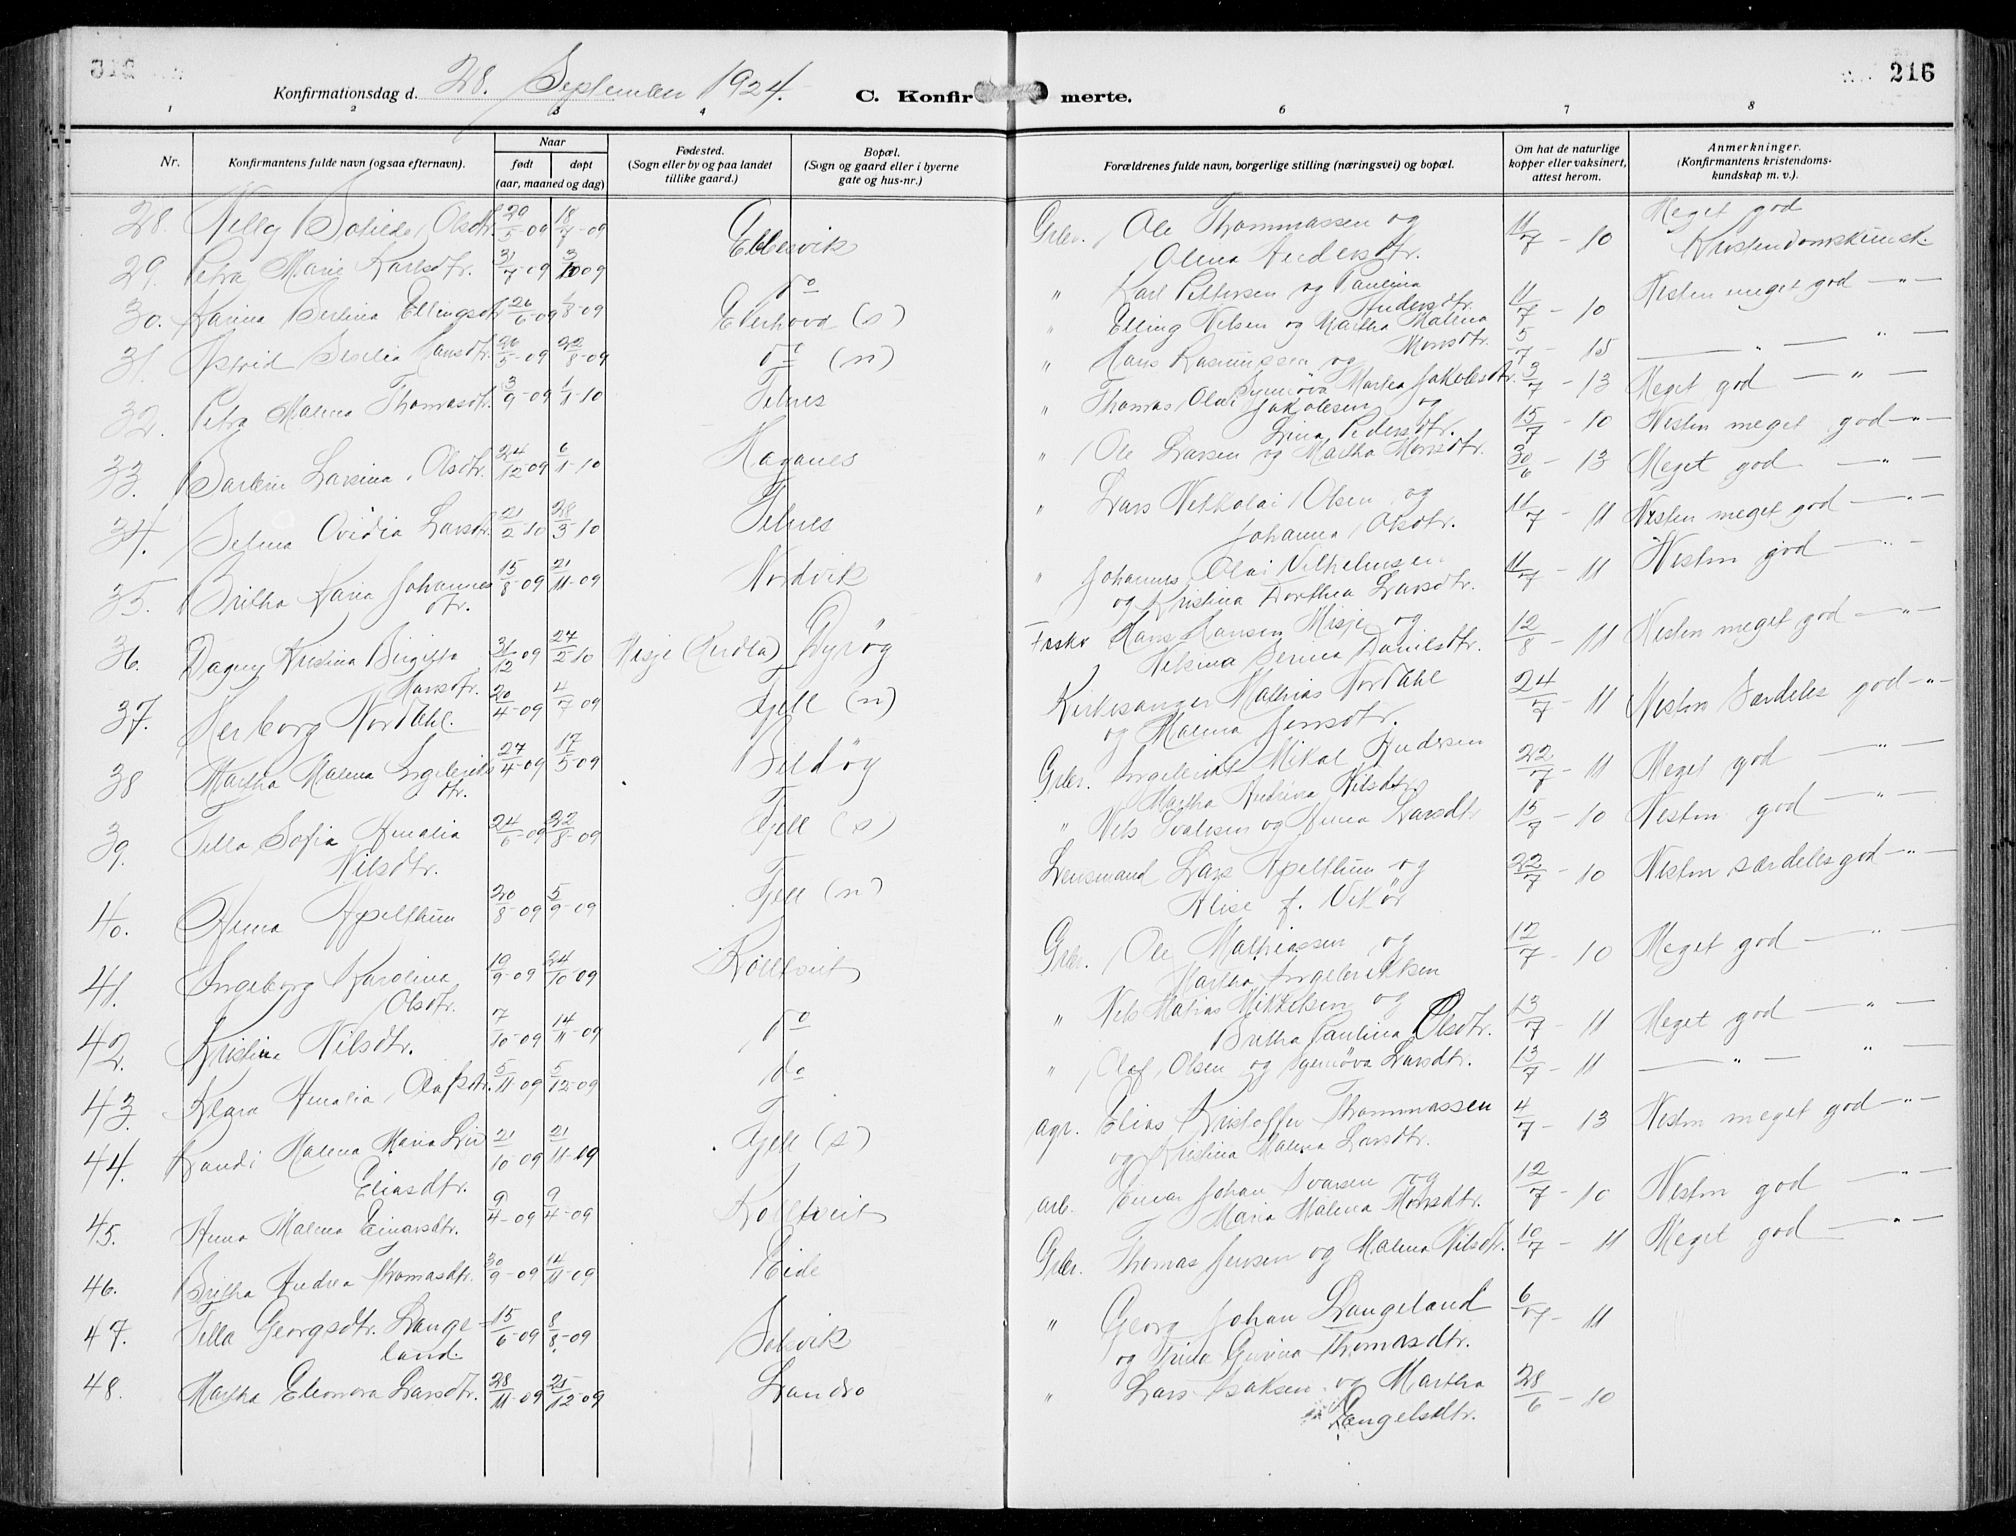 216
Konfirmationsdag d. 28. September 1924. C. Konfirmerte.
1 2 3 4 6 7 8
Nr. Konfirmantens fulde navn (ogsaa efternavn). Naar født døpt (aar, maaned og dag) Fødested. (Sogn eller by og paa landet tillike gaard.) Bopæl. (Sogn og gaard eller i byerne gate og hus-nr.) Forældrenes fulde navn, borgerlige stilling (næringsvei) og bopæl. Om hat de naturlige kopper eller vaksinert, attest herom. Anmerkninger. (Konfirmantens kristendomskundskap m. v.).
28. Nelly Bolilde Olsdtr. 29/5-09 18/7-09 Ebbesvik Grbr. Ole Thommassen og Olina Andersdtr. 11/7-10 Meget god Kristendomskunsk.
29. Petra Marie Karlsdtr. 31/7-09 3/10 09 do " Karl Pettersen og Paulina Andersdtr. 11/7-10 Nesten meget god —"—
30. Karina Berlina Ellingsdtr. 26/6-09 1/8-09 Ekerhovd (s) " Elling Nilsen og Martha Malena Monsdtr. 5/7-15 — " — " —
31. Astrid Sesilia Hansdtr. 20/5-09 22/8-09 do (n) " Hans Rasmussen og Synnøva Martha Jakobsdtr. 3/7-13 Meget god —"—
32. Petra Malena Thomasdtr. 3/9-09 1/1-10 Telnes " Thomas Olai Jakobsen og Lina Pedersdtr. 15/7-10 Nesten meget god —"—
33. Larsina Olsdtr. 24/12 09 6/1-10 Haganes " Ole Larsen og Martha Monsdtr. 30/6-13 Meget god —"—
34. Selma Ovidia Larsdtr. 21/2 10 28/3-10 Telnes " Lars Nikkolai Olsen og Johanna Olsdtr. 11/7-11 Nesten meget god —"—
35. Britha Karia Johannesdtr. 15/8-09 21/11-09 Nordvik " Johannes Olai Vilhelmsen og Kristina Dorthea Larsdtr. 11/7-11 Nesten god —"—
36. Dagny Kristina Birgitta Hansdtr. 31/12-09 27/2-10 Misje (Herdla) Dyrøy Fisker Hans Hansen Misje og Nilsina Serina Danielsdtr. 12/8-11 Nesten meget god —"—
37. Herborg Nordahl. 20/4-09 4/7 09 Fjell (n) Kirkesanger Mathias Nordahl og Malena Jensdtr. 24/7-11 Nesten Særdeles god —"—
38 Martha Malena Ingebrigtsdtr. 27/4-09 17/5-09 Bildøy Grbr. Ingebrigt Mikal Andersen Martha Andrina Nilsdtr. 22/7-11 Meget god —"—
39. Tella Sofia Amalia Nilsdtr. 24/6-09 22/8-09 Fjell (s) " Nils Ivarsen og Anna Larsdtr 15/7-10 Nesten god —"—
40. Anna Apelthun 20/8-09 5/9-09 Fjell (n) Lensmand Lars Apelthun og Alise f. Vikør 22/7-10 Nesten særdeles god —"—
41. Ingeborg Karolina Olsdtr. 19/9-09 24/10-09 Kolltveit Grbr. Ole Mathiassen og Martha Ingebrikksen 12/7-10 Meget god —"—
42. Kristine Nilsdtr. 7/10-09 14/11-09 do " Nils Matias Mikkelsen og Britha Paulina Olsdtr. 13/7-11 Meget god —"—
43. Klara Amalia Olafsdtr. 5/11-09 5/12-09 do " Olaf Olsen og Synnøva Larsdtr. 13/7-11 — " — " —
44. Randi Malena Maria Liv Eliasdtr. 21/10-09 21/11-09 Fjell (s) agr. Elias Kristoffer Thommassen og Kristina Malena Larsdtr. 4/7-13 Nesten meget god —"—
45. Anna Malena Einarsdtr. 9/4-09 9/4-09 Kolltveit arb. Einar Johan Ivarsen og Maria Malena Monsdtr. 12/7-10 Nesten god —"—
46. Britha Andrea Thomasdtr. 30/9-09 14/11-09 Eide Grbr. Thomas Jensen og Malena Nilsdtr. 10/7-11 Meget god —"—
47. Tella Georgsdtr. Langeland. 15/6-09 8/8-09 Solsvik " Georg Johan Langeland og Trina Gurina Thomasdtr. 6/7-11
48. Martha Eleonora Larsdtr. 28/11-09 25/12-09 Landro " Lars Isaksen og Martha Engelsdtr. 28/6-10